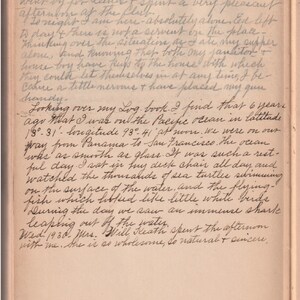 afternoon at the Club.
To night I am here absolutely alone Ed left
to day & there is not a servant in the place
Thinking over the situation as I ate my supper
alone, and knowing they both my
boy have keys to the house, with which
they could let themselves in at any time, I be-
came a little nervous & have placed my gun
handy.
Looking over my Log book I find that 6 years
ago that I was on the Pacific ocean in latitude
13°-31' longitude 93°-41' at noon, we were on our
way from Panama to San Francisco, the ocean
was as smooth as glass & it was such a rest-
ful day I sat in my deck chair all day and
watched the thousands of sea turtles swimming
on the surface of the water, and the flying
fish which looked like little white birds
During the day we saw an immense shark
leaping out of the water.
Wed 19.30. Mrs. Will Heath spent the afternoon
with me. She is so wholesome, so natural & sincere.